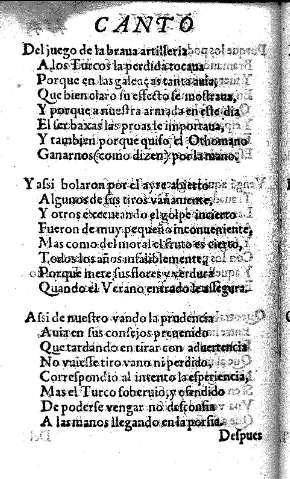 CANTO
Del juego de la braua artilleria
A los Turcos la perdida tocaua
Porque en las galeaças tanta auia,
Que bien claro su effecto se mostraua,
Y porque a nuestra armada en este dia
El ser baxas las proas le importaua,
Y tambien porque quiso el Othomano
Ganarnos (como dizen) por la mano.
Y assi bolaron por el ayre abierto
Algunos de sus tiros vanamente,
Y otros executando el golpe incierto
Fueron de muy pequeño inconueniente,
Mas como del moral el fruto es cierto,
Todos los años infaliblemente,
Porque mete sus flores y verdura
Quando el Verano entrado le assegura.
Assi de nuestro vando la prudencia
Auia en sus consejos preuenido
Que tardando en tirar con aduertencia
No vuiesse tiro vano ni perdido,
Correspondió al intento la esperiencia,
Mas el Turco soberuio, y ofendido
De poderse vengar no desconfia
A las manos llegando en la porfia.
Despues